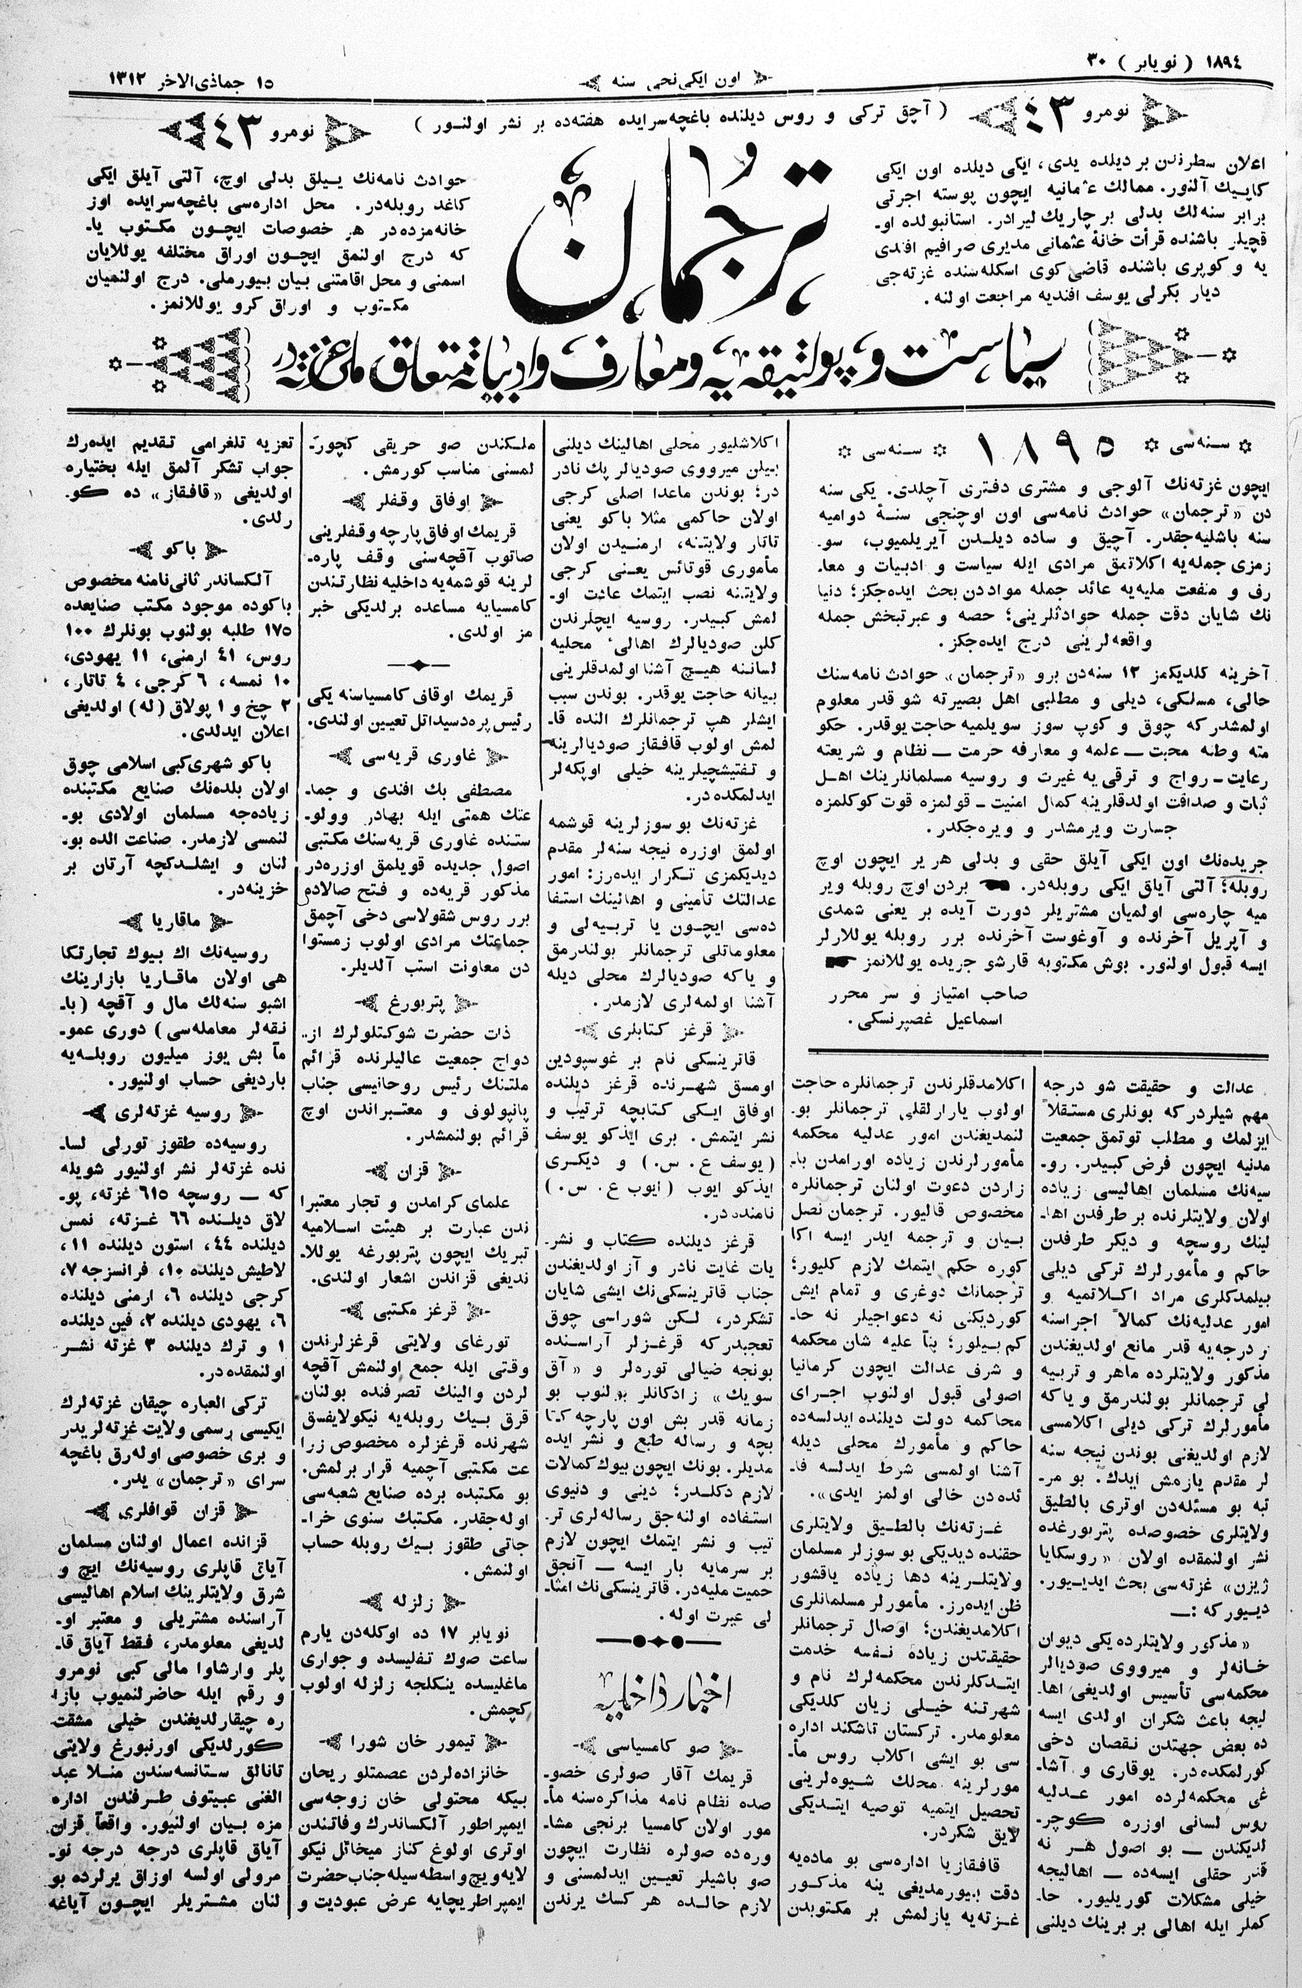 ١٨٩٤ ( نويابر ) ٣٠
اون ايكى‌نجى سنه
١٥ جماذى‌الاخر ١٣١٢
نومرو ٤٣
( آچق تركى و روس ديلنده باغچه‌سرايده هفته‌ده بر نشر اولنور )
نومرو ٤٣
اعلان سطرندن بر ديلده يدى، ايكى ديلده اون ايكى
كاپيك آلنور. ممالك عثمانيه ايچون پوسته اجرتى
برابر سنه‌لك بدلى بر چاريك ليرادر. استانبولده او-
قچيلر باشنده قرأت خانهٔ عثمانى مديرى صرافيم افندى
يه و كوپرى باشنده قاضى كوى اسكله‌سنده غزته‌جى
ديار بكرلى يوسف افنديه مراجعت اولنه.
ترجمان
حوادث نامه‌نك ييلق بدلى اوچ، آلتى آيلق ايكى
كاغد روبله‌در. محل اداره‌سى باغچه‌سرايده اوز
خانه‌مزده‌در هر خصوصات ايچون مكتوب يا-
كه درج اولنمق ايچون اوراق مختلفه يوللايان
اسمنى و محل اقامتنى بيان بيورملى. درج اولنميان
مكتوب و اوراق كرو يوللانمز.
سياست و پولتيقه‌يه و معارف و ادبياته متعلق ملى غزته‌در
سنه‌سى ١٨٩٥ سنه‌سى
ايچون غزته‌نك آلوجى و مشترى دفترى آچلدى. يكى سنه
دن «ترجمان» حوادث نامه‌سى اون اوچنجى سنهٔ دواميه
سنه باشليه‌جقدر. آچيق و ساده ديلدن آيريلميوب، سو-
زمزى جمله‌يه اكلاتمق مرادى ايله سياست و ادبيات و معا-
رف و منفعت مليه‌يه عائد جمله مواددن بحث ايده‌جكز؛ دنيا
نك شايان دقت جمله حوادثلرينه؛ حصه و عبرتبخش جمله
واقعه‌لرينى درج ايده‌جكز.
آخرينه كلديكمز ١٢ سنه‌دن برو «ترجمان» حوادث نامه‌سنك
حالى، مسلكى، ديلى و مطلبى اهل بصيرته شو قدر معلوم
اولمشدر كه چوق و كوپ سوز سويلميه حاجت يوقدر. حكو
مته وطنه محبت — علمه و معارفه حرمت — نظام و شريعته
رعايت - رواج و ترقى‌يه غيرت و روسيه مسلمانلرينك اهل
ثبات و صداقت اولدقلرينه كمال امنيت - قولمزه قوت كوكلمزه
جسارت ويرمشدر و ويره‌جكدر.
جريده‌نك اون ايكى آيلق حقى و بدلى هر ير ايچون اوچ
روبله؛ آلتى آيلق ايكى روبله‌در. بردن اوچ روبله وير
ميه چاره‌سى اولميان مشتريلر دورت آيده بر يعنى شمدى
و آپريل آخرنده و آوغوست آخرنده برر روبله يوللارلر
ايسه قبول اولنور. بوش مكتوبه قارشو جريده يوللانمز
صاحب امتياز و سر محرر
اسماعيل غصپرنسكى.
عدالت و حقيقت شو درجه
مهم شيلردر كه بونلرى مستقلاً
ايزلمك و مطلب توتمق جمعيت
مدنيه ايچون فرض كبيدر. رو-
سيه‌نك مسلمان اهاليسى زياده
اولان ولايتلرنده بر طرفدن اها-
لينك روسچه و ديكر طرفدن
حاكم و مأمورلرك تركى ديلى
بيلمدكلرى مراد اكلاتميه و
امور عدليه‌نك كمالاً اجراسنه
ز درجه‌يه قدر مانع اولديغندن
مذكور ولايتلرده ماهر و تربيه
لى ترجمانلر بولندرمق و ياكه
مأمورلرك تركى ديلى اكلامسى
لازم اولديغنى بوندن نيجه سنه
لر مقدم يازمش ايدك. بو مر-
تبه بو مسئله‌دن اوترى بالطيق
ولايتلرى خصوصده پتربورغده
نشر اولنمقده اولان «روسكايا
ژيزن» غزته‌سى بحث ايديور.
ديور كه :—
«مذكور ولايتلرده يكى ديوان
خانه‌لر و ميرووى صوديالر
محكمه‌سى تأسيس اولديغى اها-
ليجه باعث شكران اولدى ايسه
ده بعض جهتدن نقصان دخى
كورلمكده‌در. يوقارى و آشا-
غى محكمه‌لرده امور عدليه
روس لسانى اوزره كوچر-
لديكندن — بو اصول هر نه
قدر حقلى ايسه‌ده — اهاليجه
خيلى مشكلات كوريليور. حا-
كملر ايله اهالى بر برينك ديلنى
اكلامدقلرندن ترجمانلره حاجت
اولوب يارارلقلى ترجمانلر بو-
لنمديغندن امور عدليه محكمه
مأمورلرندن زياده اورامدن با-
زاردن دعوت اولنان ترجمانلره
مخصوص قاليور. ترجمان نصل
بيان و ترجمه ايدر ايسه اكا
كوره حكم ايتمك لازم كليور؛
ترجمانك دوغرى و تمام ايش
كورديكنى نه دعواجيلر نه حا-
كم بيلور؛ بنأ عليه شان محكمه
و شرف عدالت ايچون كرمانيا
اصولى قبول اولنوب اجراى
محاكمه دولت ديلنده ايدلسه‌ده
حاكم و مأمورك محلى ديله
آشنا اولمسى شرط ايدلسه فا-
ئده‌دن خالى اولمز ايدى».
غزته‌نك بالطيق ولايتلرى
حقنده ديديكى بو سوزلر مسلمان
ولايتلرينه دها زياده ياقشور
ظن ايده‌رز. مأمورلر مسلمانلرى
اكلامديغندن؛ اوصال ترجمانلر
حقيقتدن زياده نفسه خدمت
ايتدكلرندن محكمه‌لرك نام و
شهرتنه خيلى زيان كلديكى
معلومدر. تركستان تاشكند اداره
سى بو ايشى اكلاب روس مأ-
مورلرينه محلك شيوه‌لرينى
تحصيل ايتميه توصيه ايتديكى
لايق شكردر.
قافقازيا اداره‌سى بو ماده‌يه
دقت بيورمديغى ينه مذكور
غزته‌يه يازلمش بر مكتوبدن
اكلاشليور محلى اهالينك ديلنى
بيلن ميرووى صوديالر پك نادر
در؛ بوندن ماعدا اصلى كرجى
اولان حاكمى مثلا باكو يعنى
تاتار ولايتنه، ارمنيدن اولان
مأمورى قوتائس يعنى كرجى
ولايتنه نصب ايتمك عادت او-
لمش كبيدر. روسيه ايچلرندن
كلن صوديالرك اهالىٔ محليه
لساننه هيچ آشنا اولمدقلرينى
بيانه حاجت يوقدر. بوندن سبب
ايشلر هپ ترجمانلرك النده قا-
لمش اولوب قافقاز صوديالرينه
و تفتيشچيلرينه خيلى اوپكه‌لر
ايدلمكده‌در.
غزته‌نك بو سوزلرينه قوشمه
اولمق اوزره نيجه سنه‌لر مقدم
ديديكمزى تكرار ايده‌رز: امور
عدالتك تأمينى و اهالينك استفا
ده‌سى ايچون يا تربيه‌لى و
معلوماتلى ترجمانلر بولندرمق
و ياكه صوديالرك محلى ديله
آشنا اولمه‌لرى لازمدر.
قرغز كتابلرى
قاترينسكى نام بر غوسپودين
اومسق شهرنده قرغز ديلنده
اوفاق ايكى كتابچه ترتيب و
نشر ايتمش. برى ايذكو يوسف
(يوسف ع. س.) و ديكرى
ايذكو ايوب (ايوب ع. س.)
نامنده‌در.
قرغز ديلنده كتاب و نشر-
يات غايت نادر و آز اولديغندن
جناب قاترينسكى‌نك ايشى شايان
تشكردر، لكن شوراسى چوق
تعجبدر كه قرغزلر آراسنده
بونجه ضيالى توره‌لر و «آق
سويك» زادكانلر بولنوب بو
زمانه قدر بش اون پارچه كتا
بچه و رساله طبع و نشر ايده
مديلر. بونك ايچون بيوك كمالات
لازم دكلدر؛ دينى و دنيوى
استفاده اولنه‌جق رساله‌لرى تر-
تيب و نشر ايتمك ايچون لازم
بر سرمايه بار ايسه — آنجق
حميت مليه‌در. قاترينسكى‌نك امثا-
لى عبرت اوله.
اخبار داخليه
صو كامسياسى
قريمك آقار صولرى خصو-
صده نظام نامه مذاكره‌سنه مأ-
مور اولان كامسيا برنجى مشا-
وره‌ده صولره نظارت ايچون
صو باشيلر تعيين ايدلمسنى و
لازم حالده هر كسك يرندن
ملكندن صو حريقى كچور-
لمسنى مناسب كورمش.
اوفاق وقفلر
قريمك اوفاق پارچه وقفلرينى
صاتوب آقچه‌سنى وقف پاره-
لرينه قوشمه‌يه داخليه نظارتندن
كامسيايه مساعده برلديكى خبر
مز اولدى.
قريمك اوقاف كامسياسنه يكى
رئيس پره‌دسيداتل تعيين اولندى.
غاورى قريه‌سى
مصطفى بك افندى و جما-
عتك همتى ايله بهادر وولو-
ستنده غاورى قريه‌سنك مكتبى
اصول جديده قويلمق اوزره‌در
مذكور قريه‌ده و فتح صالاده
برر روس شقولاسى دخى آچمق
جماعتك مرادى اولوب زمستوا
دن معاونت استب آلديلر.
پتربورغ
ذات حضرت شوكتلولرك از-
دواج جمعيت عاليلرنده قرائم
ملتنك رئيس روحانيسى جناب
پانپولوف و معتبراندن اوچ
قرائم بولنمشدر.
قزان
علماى كرامدن و تجار معتبرا
ندن عبارت بر هيئت اسلاميه
تبريك ايچون پتربورغه يوللا-
نديغى قزاندن اشعار اولندى.
قرغز مكتبى
تورغاى ولايتى قرغزلرندن
وقتى ايله جمع اولنمش آقچه
لردن والينك تصرفنده بولنان
قرق بيك روبله‌يه نيكولايفسق
شهرنده قرغزلره مخصوص زرا
عت مكتبى آچميه قرار برلمش.
بو مكتبده برده صنايع شعبه‌سى
اوله‌جقدر. مكتبك سنوى خرا-
جاتى طقوز بيك روبله حساب
اولنمش.
زلزله
نويابر ١٧ ده اوكله‌دن يارم
ساعت صوك تفليسده و جوارى
ماغليسده ينكلجه زلزله اولوب
كچمش.
تيمور خان شورا
خانزاده‌لردن عصمتلو ريحان
بيكه محتولى خان زوجه‌سى
ايمپراطور آلكساندرك وفاتندن
اوترى اولوغ كناز ميخائل نيكو
لايه‌ويچ واسطه‌سيله جناب حضرت
ايمپراطريچايه عرض عبوديت و
تعزيه تلغرامى تقديم ايده‌رك
جواب تشكر آلمق ايله بختياره
اولديغى «قافقاز» ده كو-
رلدى.
باكو
آلكساندر ثانى نامنه مخصوص
باكوده موجود مكتب صنايعده
١٧٥ طلبه بولنوب بونلرك ١٠٠
روس، ٤١ ارمنى، ١١ يهودى،
١٠ نمسه، ٦ كرجى، ٤ تاتار،
٢ چخ و ١ پولاق (له) اولديغى
اعلان ايدلدى.
باكو شهرى كبى اسلامى چوق
اولان بلده‌نك صنايع مكتبنده
زياده‌جه مسلمان اولادى بو-
لنمسى لازمدر. صناعت الده بو-
لنان و ايشلدكچه آرتان بر
خزينه‌در.
ماقاريا
روسيه‌نك اك بيوك تجارتكا
هى اولان ماقاريا بازارينك
اشبو سنه‌لك مال و آقچه (با-
نقه‌لر معامله‌سى) دورى عمو-
مآ بش يوز ميليون روبله‌يه
بارديغى حساب اولنيور.
روسيه غزته‌لرى
روسيه‌ده طقوز تورلى لسا-
نده غزته‌لر نشر اولنيور شويله
كه — روسچه ٦١٥ غزته، پو-
لاق ديلنده ٦٦ غزته، نمس
ديلنده ٤٤، استون ديلنده ١١،
لاطيش ديلنده ١٠، فرانسزجه ٧،
كرجى ديلنده ٦، ارمنى ديلنده
٦، يهودى ديلنده ٢، فين ديلنده
١ و ترك ديلنده ٣ غزته نشر
اولنمقده‌در.
تركى العباره چيقان غزته‌لرك
ايكيسى رسمى ولايت غزته‌لريدر
و برى خصوصى اوله‌رق باغچه
سراى «ترجمان» يدر.
قزان قوافلرى
قزانده اعمال اولنان مسلمان
آياق قاپلرى روسيه‌نك ايچ و
شرق ولايتلرينك اسلام اهاليسى
آراسنده مشتريلى و معتبر او-
لديغى معلومدر، فقط آياق قا-
پلر وارشاوا مالى كبى نومرو
و رقم ايله حاضرلنميوب بازا
ره چيقارلديغندن خيلى مشقت
كورلديكى اورنبورغ ولايتى
تانالق ستانسه‌سندن منلا عبد
الغنى عبيتوف طرفندن اداره
مزه بيان اولنيور. واقعآ قزان
آياق قاپلرى درجه درجه نو-
مرولى اولسه اوزاق يرلرده بو
لنان مشتريلر ايچون آياغه